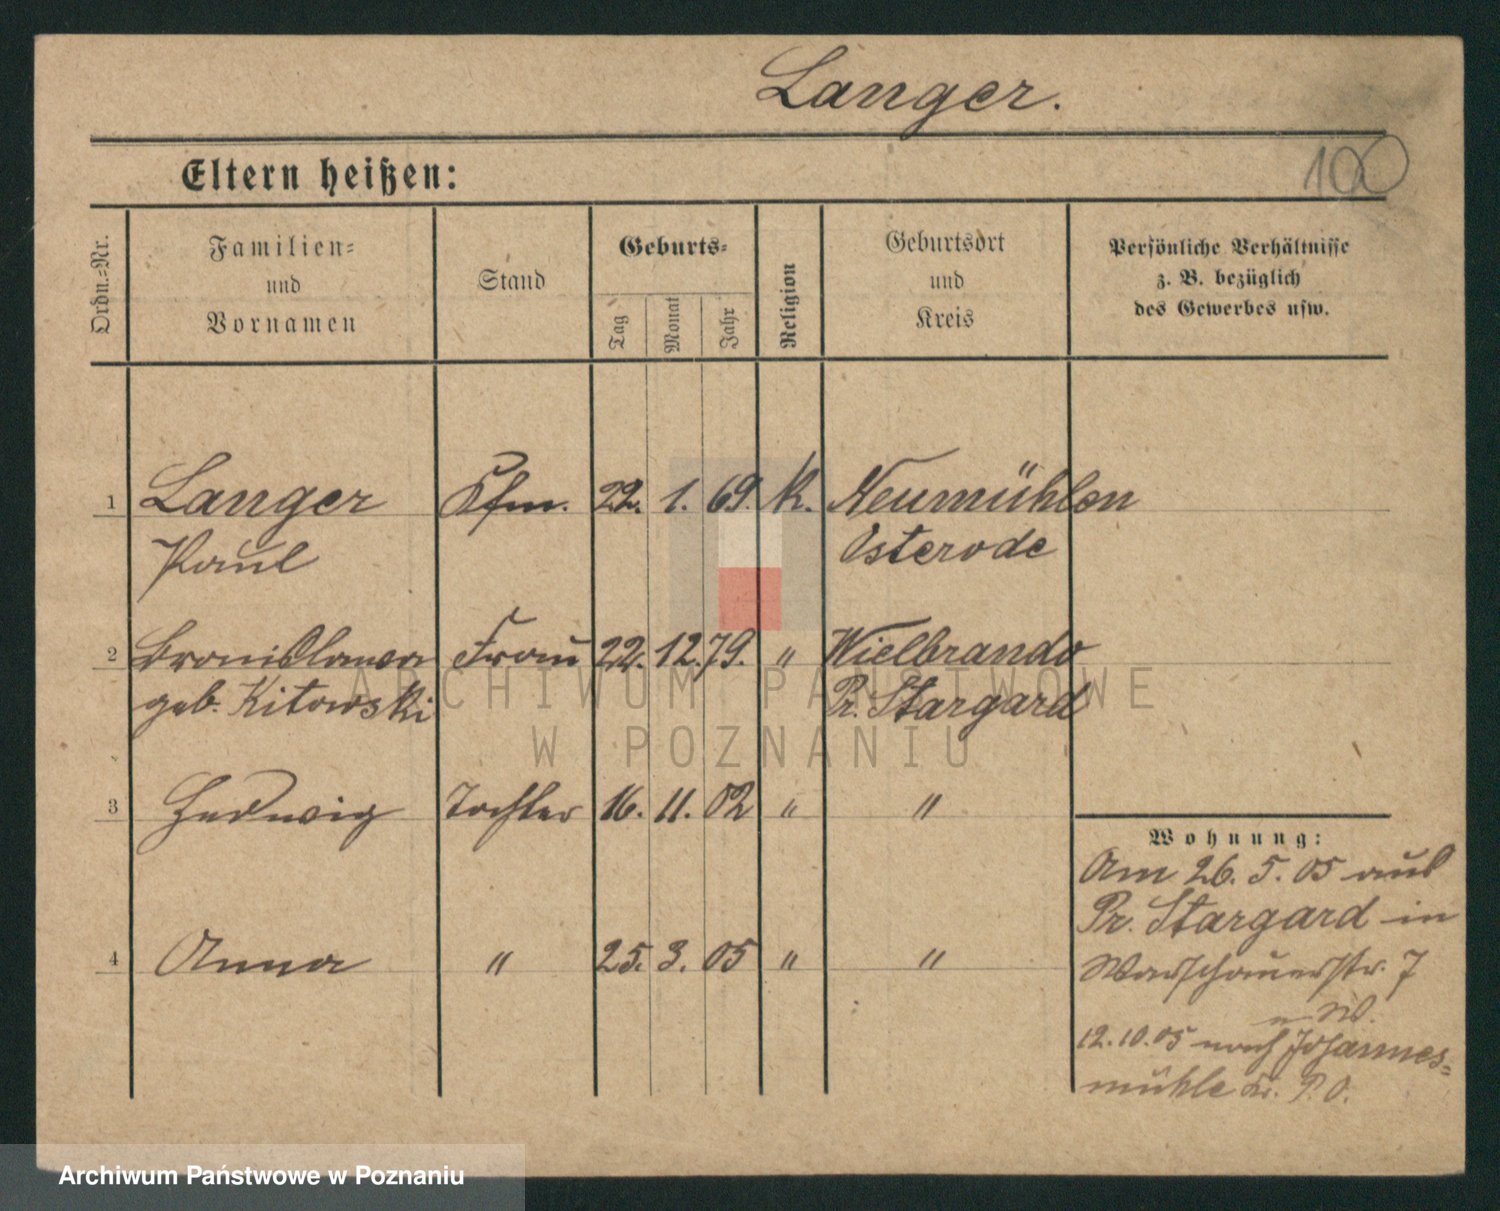 Langer.
Eltern heißen:
100
Ordn.=Nr.
Familien=
und
Vornamen
Stand
Geburts=
Tag
Monat
Jahr
Religion
Geburtsort
und
Kreis
Persönliche Verhältnisse
z. B. bezüglich
des Gewerbes usw.
1 Langer Kfm. 22. 1. 69. K. Neumühlen
Paul Osterode
2 Bronislawa Frau 22. 12. 79. " Wielbrando
geb. Kitowski Pr. Stargard
3 Hedwig Tochter 16. 11. 02 " "
4 Anna " 25. 3. 05 " "
Wohnung:
Am 26. 5. 05 aus
Pr. Stargard in
Warschauerstr. 7
12.10.05 nach Johannes=
mühle Kr. P. O.
ARCHIWUM PAŃSTWOWE
W POZNANIU
Archiwum Państwowe w Poznaniu